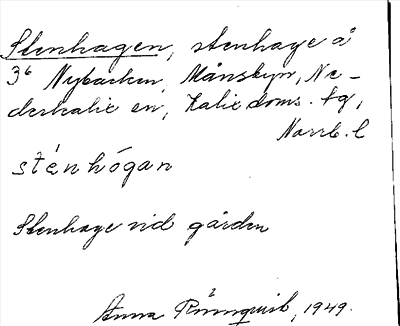 Stenhagen, stenhage å
3⁶ Nybacken, Månsbyn, Ne-
derkalix en, Kalix doms. tg,
Norrb. l
sténhógan
Stenhage vid gården
Anna Rönnquist, 1949.